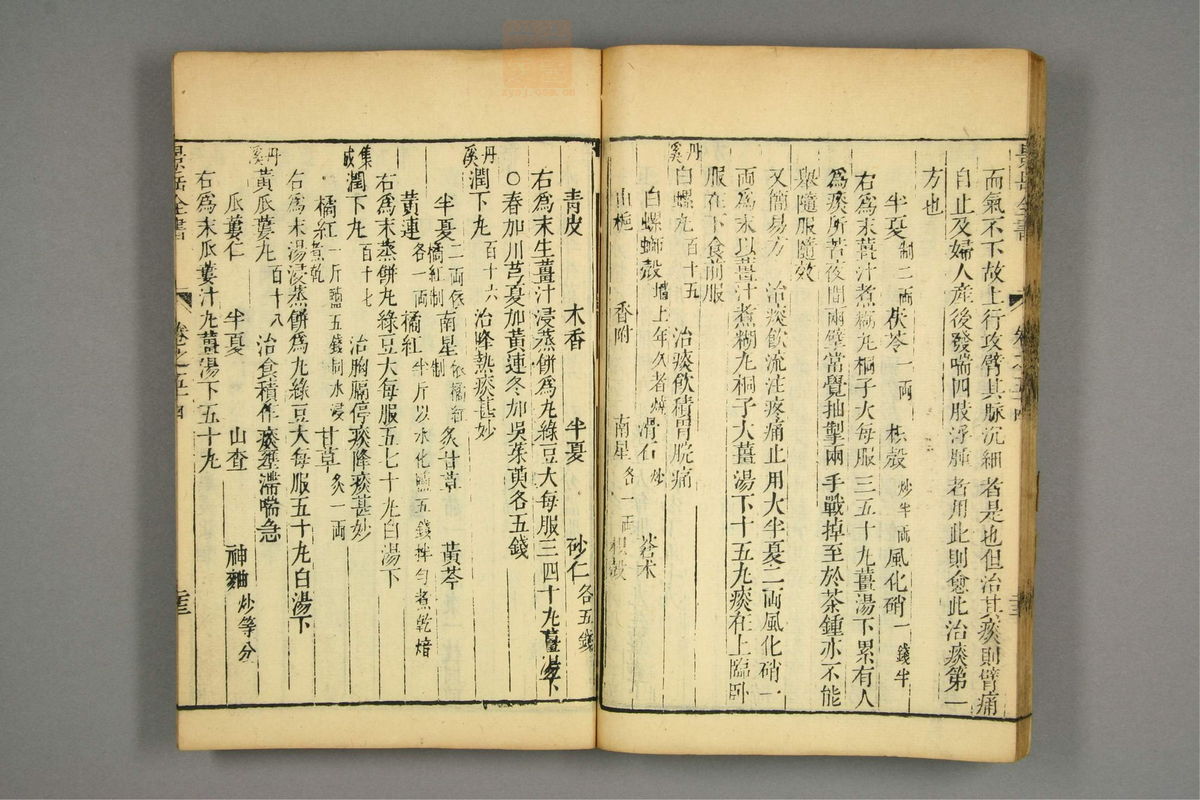 景岳全書 卷之五十四
而氣不下故上行攻臂其脉沉細者是也但治其痰則臂痛
自止及婦人產後發喘四肢浮腫者用此則愈此治痰第一
方也
半夏製二両 茯苓一両 枳殼炒半両 風化硝一錢半
右為末薑汁煮糊丸桐子大每服三五十丸薑湯下累有人
為痰所苦夜間兩臂當覺抽掣兩手戰掉至於茶鍾亦不能
舉隨服隨效
又簡易方 治痰飲流注疼痛止用大半夏二両風化硝一
両為末以薑汁煮糊丸桐子大薑湯下十五丸痰在上臨卧
服在下食前服
丹溪白螺丸百十五 治痰飲積胃脘痛
白螺螄殼墻上年久者燒 滑石炒 蒼朮
山梔 香附 南星各一両 枳殼
青皮 木香 半夏 砂仁各五錢
右為末生薑汁浸蒸餅為丸綠豆大每服三四十丸薑湯下
○春加川芎夏加黃連冬加吳茱萸各五錢
丹溪潤下丸百十六 治降熱痰甚妙
半夏二両依橘紅製 南星依橘紅製 炙甘草 黃芩
黃連各一両 橘紅半斤以水化鹽五錢拌勻煮乾焙
右為末蒸餅丸綠豆大每服五七十丸白湯下
集成潤下丸百十七 治胸膈停痰降痰甚妙
橘紅一斤鹽五錢同水浸煮乾 甘草炙一両
右為末湯浸蒸餅為丸綠豆大每服五十丸白湯下
丹溪黃瓜蔞丸百十八 治食積作痰壅滯喘急
瓜蔞仁 半夏 山查 神麯炒等分
右為末瓜蔞汁丸薑湯下五十丸
景岳全書 卷之五十四